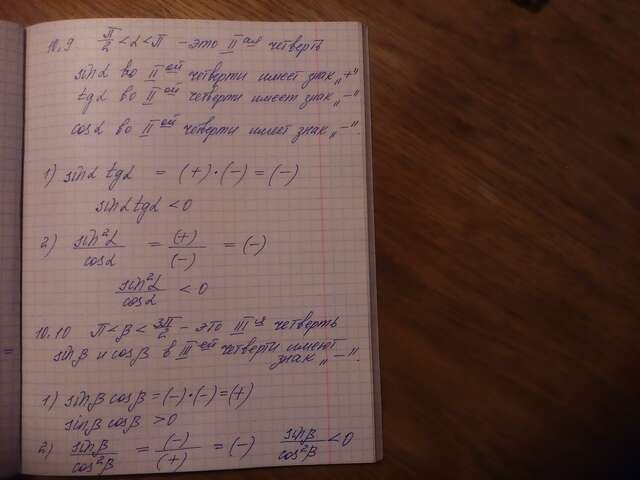 10.9 π/2 < α < π - это II ая четверть
sinα во II ой четверти имеет знак „+“
tgα во II ой четверти имеет знак „−“
cosα во II ой четверти имеет знак „−“.
1) sinα tgα = (+)·(−) = (−)
sinα tgα < 0
2) sin²α/cosα = (+)/(−) = (−)
sin²α/cosα < 0
10.10 π < β < 3π/2 - это III я четверть
sinβ и cosβ в III ей четверти имеют
знак „−“.
1) sinβ cosβ = (−)·(−) = (+)
sinβ cosβ > 0
2) sinβ/cos²β = (−)/(+) = (−) sinβ/cos²β < 0